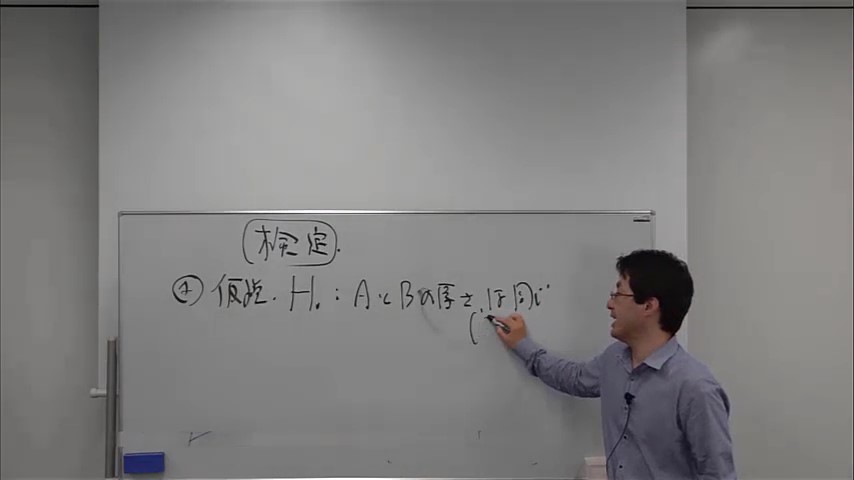 検定.
① 仮説. H₀ : AとBの厚さは同じ
(